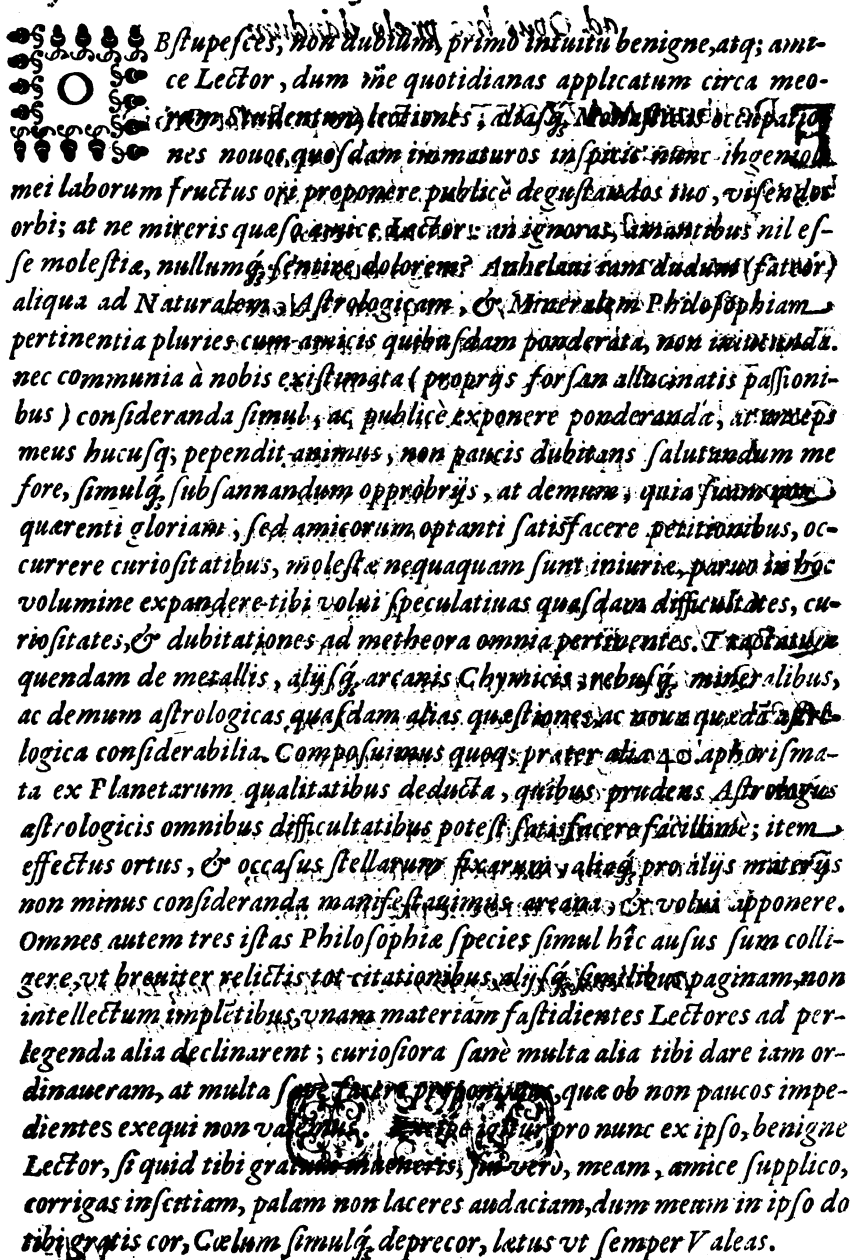 OBſtupeſces, non dubium, primo intuitu benigne, atq; ami-
ce Lector, dum me quotidianas applicatum circa meo-
rum Studentum lectiones, aliaſq́; Monaſticas occupatio
nes nouos quoſdam immaturos inſpicis nunc ingenioli
mei laborum fructus ori proponere publicè deguſtandos tuo, viſendos
orbi; at ne mireris quæſo amice Lector: an ignoras, amantibus nil eſ-
ſe moleſtiæ, nullumq́; ſentire dolorem? Anhelaui iam dudum (fateor)
aliqua ad Naturalem, Aſtrologicam, & Mineralem Philoſophiam
pertinentia pluries cum amicis quibuſdam ponderata, non iniucunda.
nec communia à nobis exiſtimata (proprijs forſan allucinatis paſſioni-
bus) conſideranda ſimul, ac publicè exponere ponderanda, at anceps
meus hucuſq; pependit animus, non paucis dubitans ſalutandum me
fore, ſimulq́; ſubſannandum opprobrijs, at demum, quia ſuam non
quærenti gloriam, ſed amicorum optanti ſatisfacere petitionibus, oc-
currere curioſitatibus, moleſtæ nequaquam ſunt iniuriæ, paruo in hoc
volumine expandere tibi volui ſpeculatiuas quaſdam difficultates, cu-
rioſitates, & dubitationes ad metheora omnia pertinentes. Tractatum
quendam de metallis, alijſq́; arcanis Chymicis, rebuſq́; mineralibus,
ac demum aſtrologicas quaſdam alias quæſtiones, ac noua quædā aſtro-
logica conſiderabilia. Compoſuimus quoq; præter alia 40. aphoriſma-
ta ex Planetarum qualitatibus deducta, quibus prudens Aſtrologus
aſtrologicis omnibus difficultatibus poteſt ſatisfacere facillimè; item
effectus ortus, & occaſus ſtellarum fixarum, aliaq́; pro alijs materijs
non minus conſideranda manifeſtauimus arcana, & volui apponere.
Omnes autem tres iſtas Philoſophiæ ſpecies ſimul hîc auſus ſum colli-
gere, vt breuiter relictis tot citationibus, alijſq́; ſimilibus paginam, non
intellectum implẽtibus, vnam materiam faſtidientes Lectores ad per-
legenda alia declinarent; curioſiora ſanè multa alia tibi dare iam or-
dinaueram, at multa ſæpè facere proponimus, quæ ob non paucos impe-
dientes exequi non valemus. Excipe igitur pro nunc ex ipſo, benigne
Lector, ſi quid tibi gratum inueneris, ſin verò, meam, amice ſupplico,
corrigas inſcitiam, palam non laceres audaciam, dum meum in ipſo do
tibi gratis cor, Cœlum ſimulq́; deprecor, lætus vt ſemper Valeas.